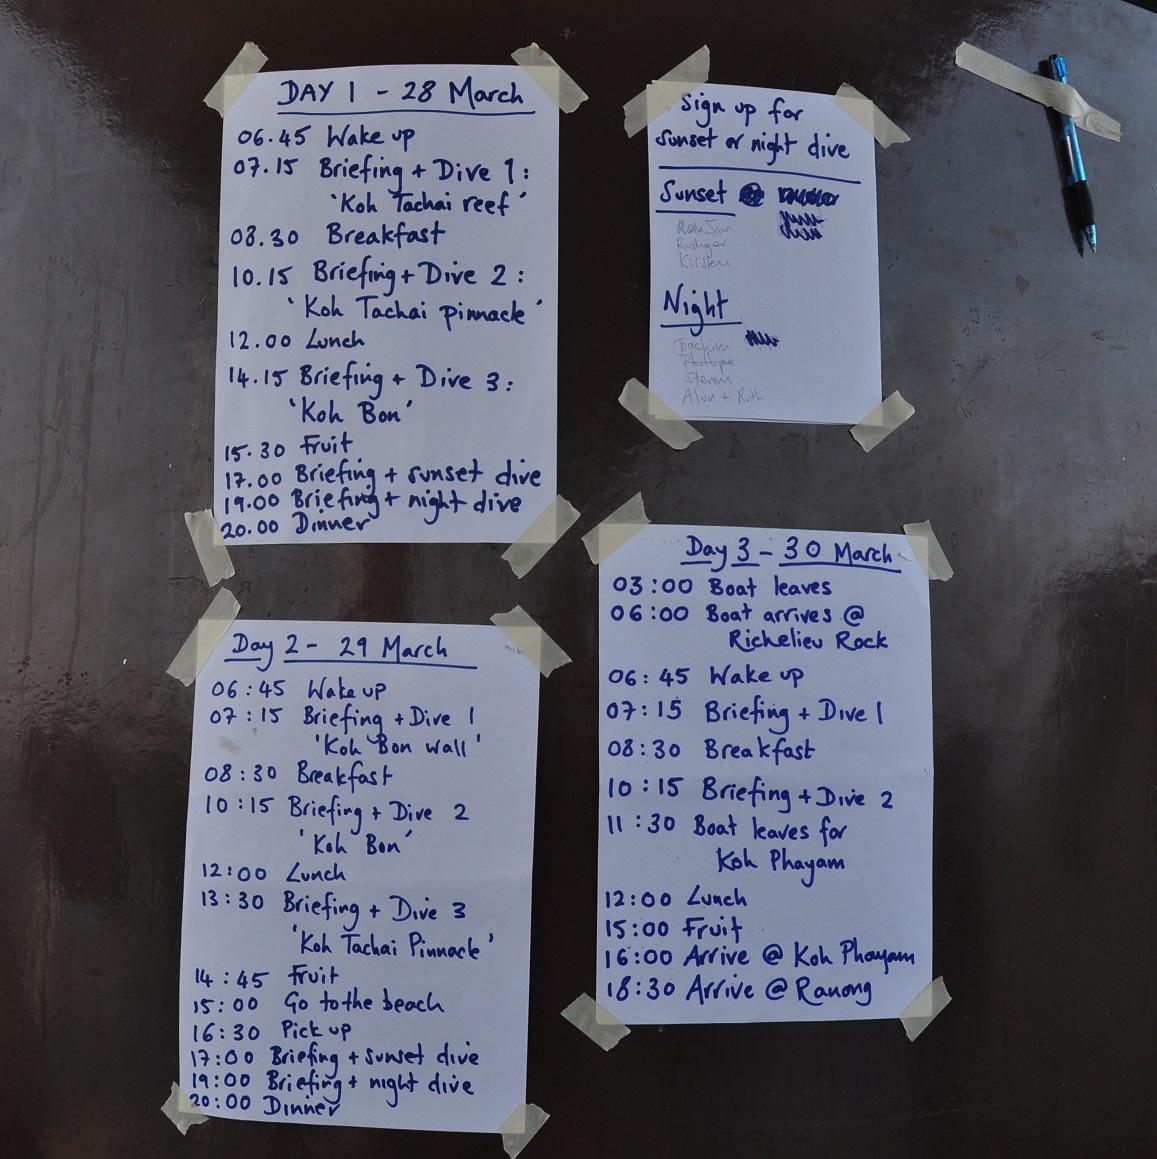 DAY 1 - 28 March
06.45 Wake up
07.15 Briefing + Dive 1:
'Koh Tachai reef'
08.30 Breakfast
10.15 Briefing + Dive 2:
'Koh Tachai pinnacle'
12.00 Lunch
14.15 Briefing + Dive 3:
'Koh Bon'
15.30 Fruit
17.00 Briefing + sunset dive
19.00 Briefing + night dive
20.00 Dinner
Sign up for
sunset or night dive
Sunset
Rudiger
Kirsten
Night
Joachim
Phillipe
Steven
Alun + Ruth
Day 2 - 29 March
06:45 Wake up
07:15 Briefing + Dive 1
'Koh Bon wall'
08:30 Breakfast
10:15 Briefing + Dive 2
'Koh Bon'
12:00 Lunch
13:30 Briefing + Dive 3
'Koh Tachai Pinnacle'
14:45 Fruit
15:00 Go to the beach
16:30 Pick up
17:00 Briefing + sunset dive
19:00 Briefing + night dive
20:00 Dinner
Day 3 - 30 March
03:00 Boat leaves
06:00 Boat arrives @
Richelieu Rock
06:45 Wake up
07:15 Briefing + Dive 1
08:30 Breakfast
10:15 Briefing + Dive 2
11:30 Boat leaves for
Koh Phayam
12:00 Lunch
15:00 Fruit
16:00 Arrive @ Koh Phayam
18:30 Arrive @ Ranong